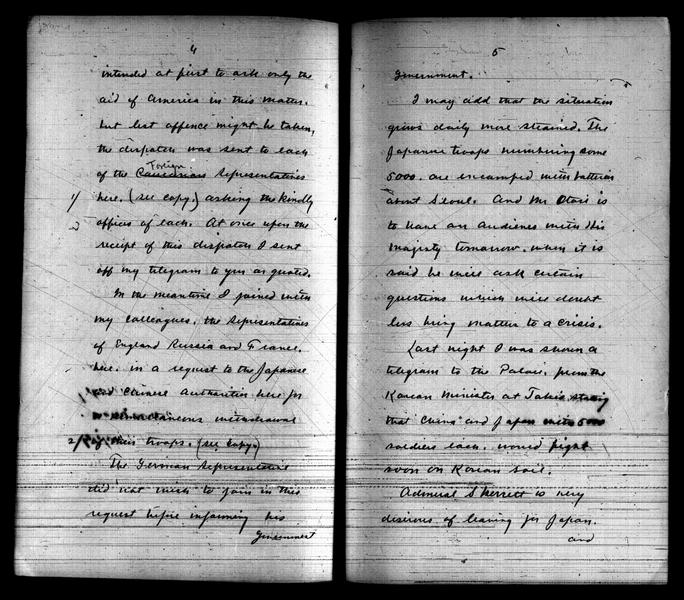 4
intended at first to ask only the
aid of America in this matter.
but lest offence might be taken,
the dispatch was sent to each
Foreign
of the Caucasian Representatives
1/ here. (see copy.) asking the kindly
2 offices of each. At once upon the
receipt of this dispatch I sent
off my telegram to you as quoted.
In the meantime I joined with
my colleagues. the Representatives
of England Russia and France.
here. in a request to the Japanese
and Chinese Authorities here for
a simultaneous withdrawal
2/ their troops. (see copy.)
The German Representative
did not wish to join in this
request before informing his
Government
5
Government.
I may add that the situation
grows daily more strained. The
Japanese troops numbering some
5000. are encamped with batteries
about Seoul. And Mr Otori is
to have an audience with His
Majesty tomorrow. when it is
said he will ask certain
questions which will doubt
less bring matters to a crisis.
Last night I was shown a
telegram to the Palace. from the
Korean Minister at Tokio. stating
that China and Japan with 5000
soldiers each. would fight
soon on Korean soil.
Admiral Skerrett is very
desirous of leaving for Japan.
and